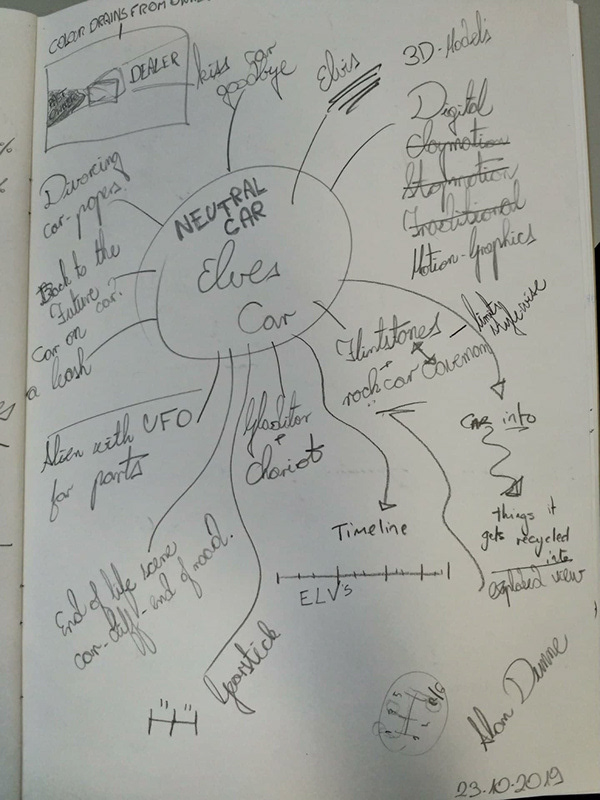 COLOUR DRAINS FROM
DEALER
kiss car
goodbye
Elvis
3D-Models
Digital
Claymotion
Stopmotion
Traditional
Motion-Graphics
Divorcing
car-papers?
NEUTRAL
CAR
Elves
Car
Back to the
Future
car?
Car on
a leash
Flintstones
rock car Caveman
stylewise
Alien with UFO
for parts
Gladitor
+
Chariot
Car into
things it
gets recycled
into
exploded view
Timeline
ELV's
End of life scene
car-cliff-end of road.
Gearstick
Alan Dunne
23-10-2019